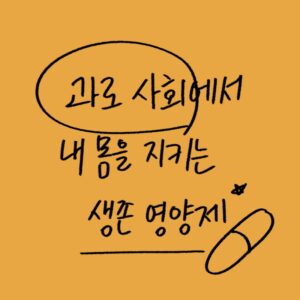 과로 사회에서
내 몸을 지키는
생존 영양제